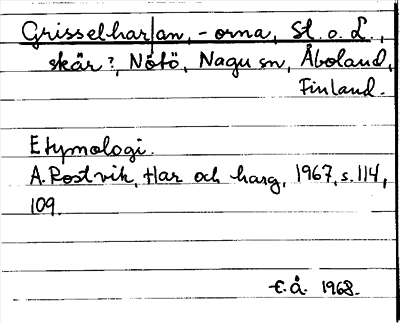 Grisselhar|an, -orna, St. o. L.,
skär?, Nötö, Nagu sn, Åboland,
Finland.
Etymologi.
A. Rostvik, Har och harg, 1967, s. 114,
109.
E.Å. 1968.